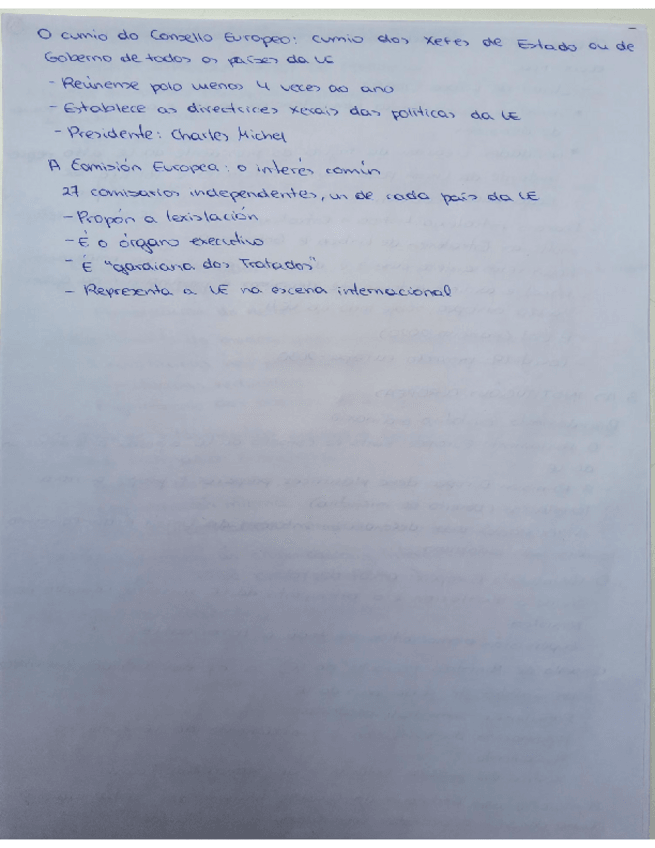 O cumio do Consello Europeo: cumio dos xefes de Estado ou de
Goberno de todos os países da UE
- Reúnense polo menos 4 veces ao ano
- Establece as directrices xerais das políticas da UE
- Presidente: Charles Michel
A Comisión Europea: o interés común
27 comisarios independentes, un de cada país da UE
- Propón a lexislación
- É o órgano executivo
- É "gardiana dos Tratados"
- Representa a UE na escena internacional